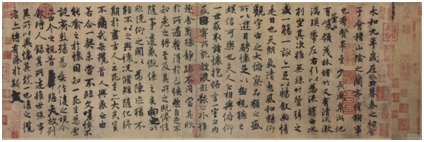 永和九年歲在癸丑暮春之初會
于會稽山陰之蘭亭脩禊事
也群賢畢至少長咸集此地
有崇山峻領茂林脩竹又有清流激
湍暎帶左右引以為流觴曲水
列坐其次雖無絲竹管弦之
盛一觴一詠亦足以暢叙幽情
是日也天朗氣清惠風和暢仰
觀宇宙之大俯察品類之盛
所以遊目騁懷足以極視聽之
娛信可樂也夫人之相與俯仰
一世或取諸懷抱悟言一室之內
或因寄所託放浪形骸之外雖
趣舍萬殊靜躁不同當其欣
於所遇暫得於己快然自足不
知老之將至及其所之既惓情
隨事遷感慨係之矣向之所
欣俛仰之間以為陳迹猶不
能不以之興懷況脩短隨化終
期於盡古人云死生亦大矣豈
不痛哉每攬昔人興感之由
若合一契未嘗不臨文嗟悼不
能喻之於懷固知一死生為虛
誕齊彭殤為妄作後之視今
亦由今之視昔悲夫故列
叙時人錄其所述雖世殊事
異所以興懷其致一也後之攬
者亦將有感於斯文